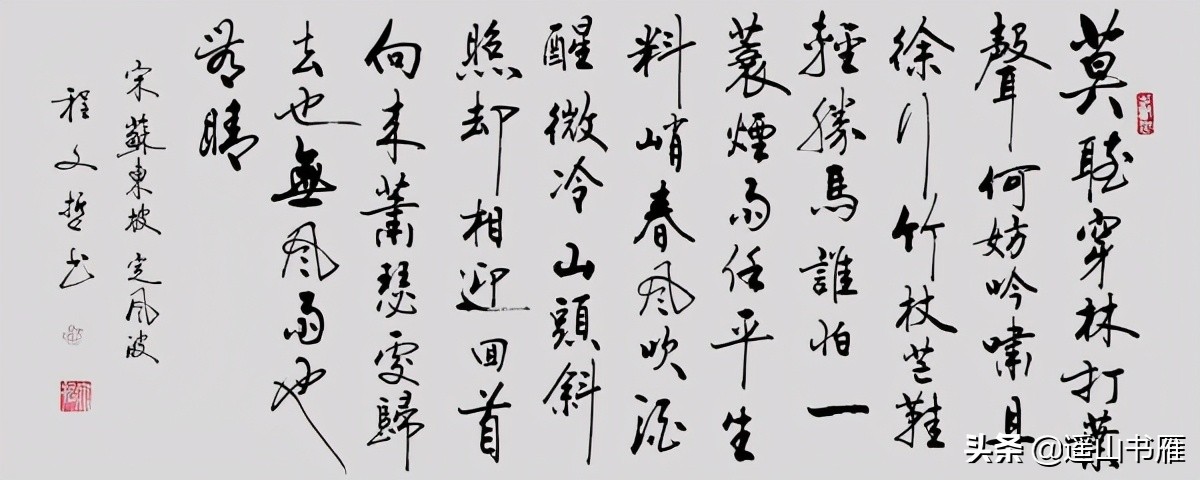 莫聽穿林打葉
聲何妨吟嘯且
徐行竹杖芒鞋
輕勝馬誰怕一
蓑煙雨任平生
料峭春風吹酒
醒微冷山頭斜
照却相迎回首
向来蕭瑟處歸
去也無風雨也
無晴
宋蘇東坡定風波
程文哲书
头条@遥山书雁